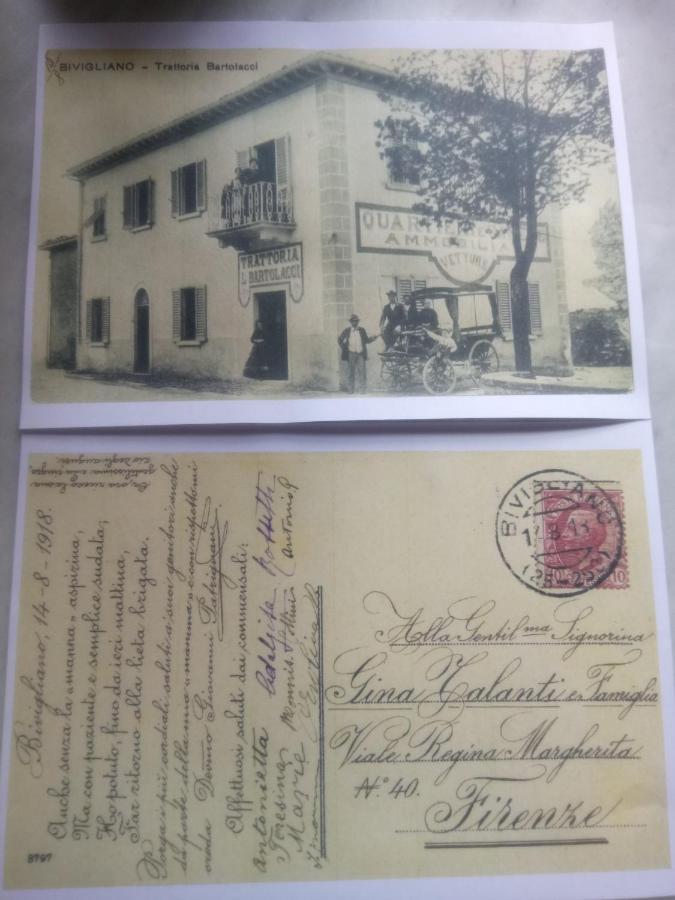 BIVIGLIANO - Trattoria Bartolacci
TRATTORIA
L. BARTOLACCI
QUARTIERE
AMMOBILIA
VETTURE
Bivigliano, 14-8-1918.
Anche senza la "manna" aspirina,
Ma con paziente e semplice sudata,
Ho potuto, fino da ieri mattina,
Far ritorno alla lieta brigata.
Porga i più cordiali saluti a suoi genitori anche
da parte della mia mamma e con rispetto mi
creda Devmo Giovanni
Affettuosi saluti dai commensali:
Antonietta
Adelgisa Rossetti
Teresina
Marie
BIVIGLIANO
10
Alla Gentil.ma Signorina
Gina Talanti e Famiglia
Viale Regina Margherita
N.° 40.
Firenze
8797